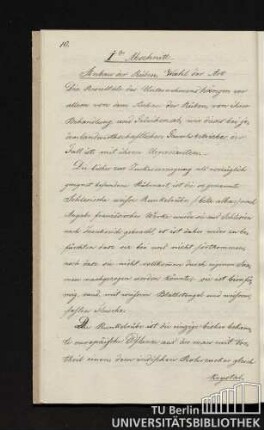 10.
1ter Abschnitt.
Anbau der Rüben, Wahl der Art.
Die Resultate des Unternehmens hängen vor
allem von dem Anbau der Rüben, von ihrer
Behandlung und wie dies bei je-
dem landwirthschaftlichen Gewerbsbetriebe der
Fall ist mit ihrem
Die bisher zur Zuckererzeugung als vorzüglich
geeignet befundene Rübenart ist die so genannte
Schlesische weiße Runkelrübe, / beta alba / nach
Angabe französischer Werke wurde sie aus Schlesien
nach Frankreich gebracht, es ist daher nicht zu be-
fürchten daß sie bei uns nicht fortkommen
noch daß sie nicht vollkommen durch eigenen Saa-
men nachgezogen werden könnte, sie ist
mig rund, mit weißem Blattstengel und weißem
festen Fleische.
Die Runkelrübe ist die einzige bisher bekann-
te europäische Pflanze aus der man mit Vor-
theil einen dem indischen Rohrzucker gleich
Krystal-
TU Berlin
UNIVERSITÄTSBIBLIOTHEK